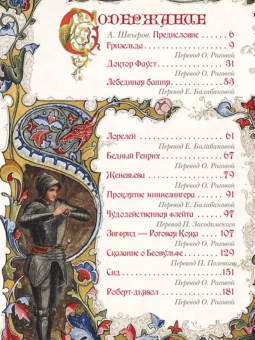 Содержание
А. Шнуров. Предисловие . . . . . . 6
Гризельда . . . . . . 9
Перевод О. Роговой
Доктор Фауст . . . . . . 31
Перевод О. Роговой
Лебединая башня . . . . . 53
Перевод Е. Балабановой
Лорелей . . . . . . 61
Перевод Е. Балабановой
Бедный Генрих . . . . . . 67
Перевод О. Роговой
Женевьева . . . . . . 79
Перевод О. Роговой
Проклятие миннезингера . . . . 91
Перевод Е. Балабановой
Чудодейственная флейта . . . . 97
Перевод П. Засодимского
Зигфрид — Роговая Кожа . . . 107
Перевод О. Роговой
Сказание о Беовульфе . . . . 129
Перевод П.
Сид . . . . . . 151
Перевод О. Роговой
Роберт-дьявол . . . . . 181
Перевод О. Роговой